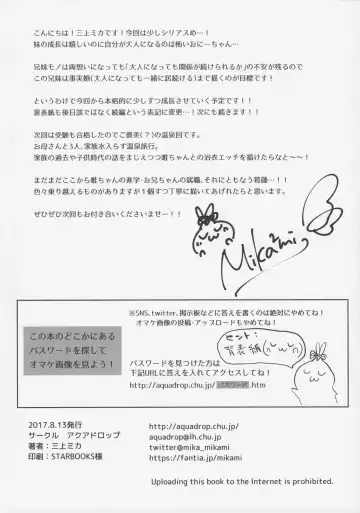 こんにちは！三上ミカです！今回は少しシリアスめ…！
妹の成長は嬉しいのに自分が大人になるのは怖いおにーちゃん…
兄妹モノは両想いになっても「大人になっても関係が続けられるか」の不安が残るので
この兄妹は事実婚(大人になっても一緒に居続ける)まで描くのが目標です！
というわけで今回から本格的に少しずつ成長させていく予定です！！
裏表紙も後日談ではなく続編という表記に変更…！次にも続きます！！
次回は受験も合格したのでご褒美(？)の温泉回です。
お母さんと3人、家族水入らず温泉旅行。
家族の過去や子供時代の話をまじえつつ雌ちゃんとの浴衣エッチを描けたらなと〜〜！
まだまだここから雌ちゃんの進学・お兄ちゃんの就職、それにともなう葛藤…！！
色々乗り越えるものがありますが１個ずつ丁寧に描いてあげれたらと思います。
ぜひぜひ次回もお付き合いくださいませー！！
Mikami
この本のどこかにある
パスワードを探して
オマケ画像を見よう！
※SNS、twitter、掲示板などに答えを書くのは絶対にやめてね！
オマケ画像の投稿・アップロードもやめてね！
ヒント：
背表紙
パスワードを見つけた方は
下記URLに答えを入れてアクセスしてね！
http://aquadrop.chu.jp/パスワード.htm
2017.8.13発行
サークル　アクアドロップ
著者：三上ミカ
印刷：STARBOOKS様
http://aquadrop.chu.jp/
aquadrop@lh.chu.jp
twitter@mika_mikami
https://fantia.jp/mikami
Uploading this book to the Internet is prohibited.